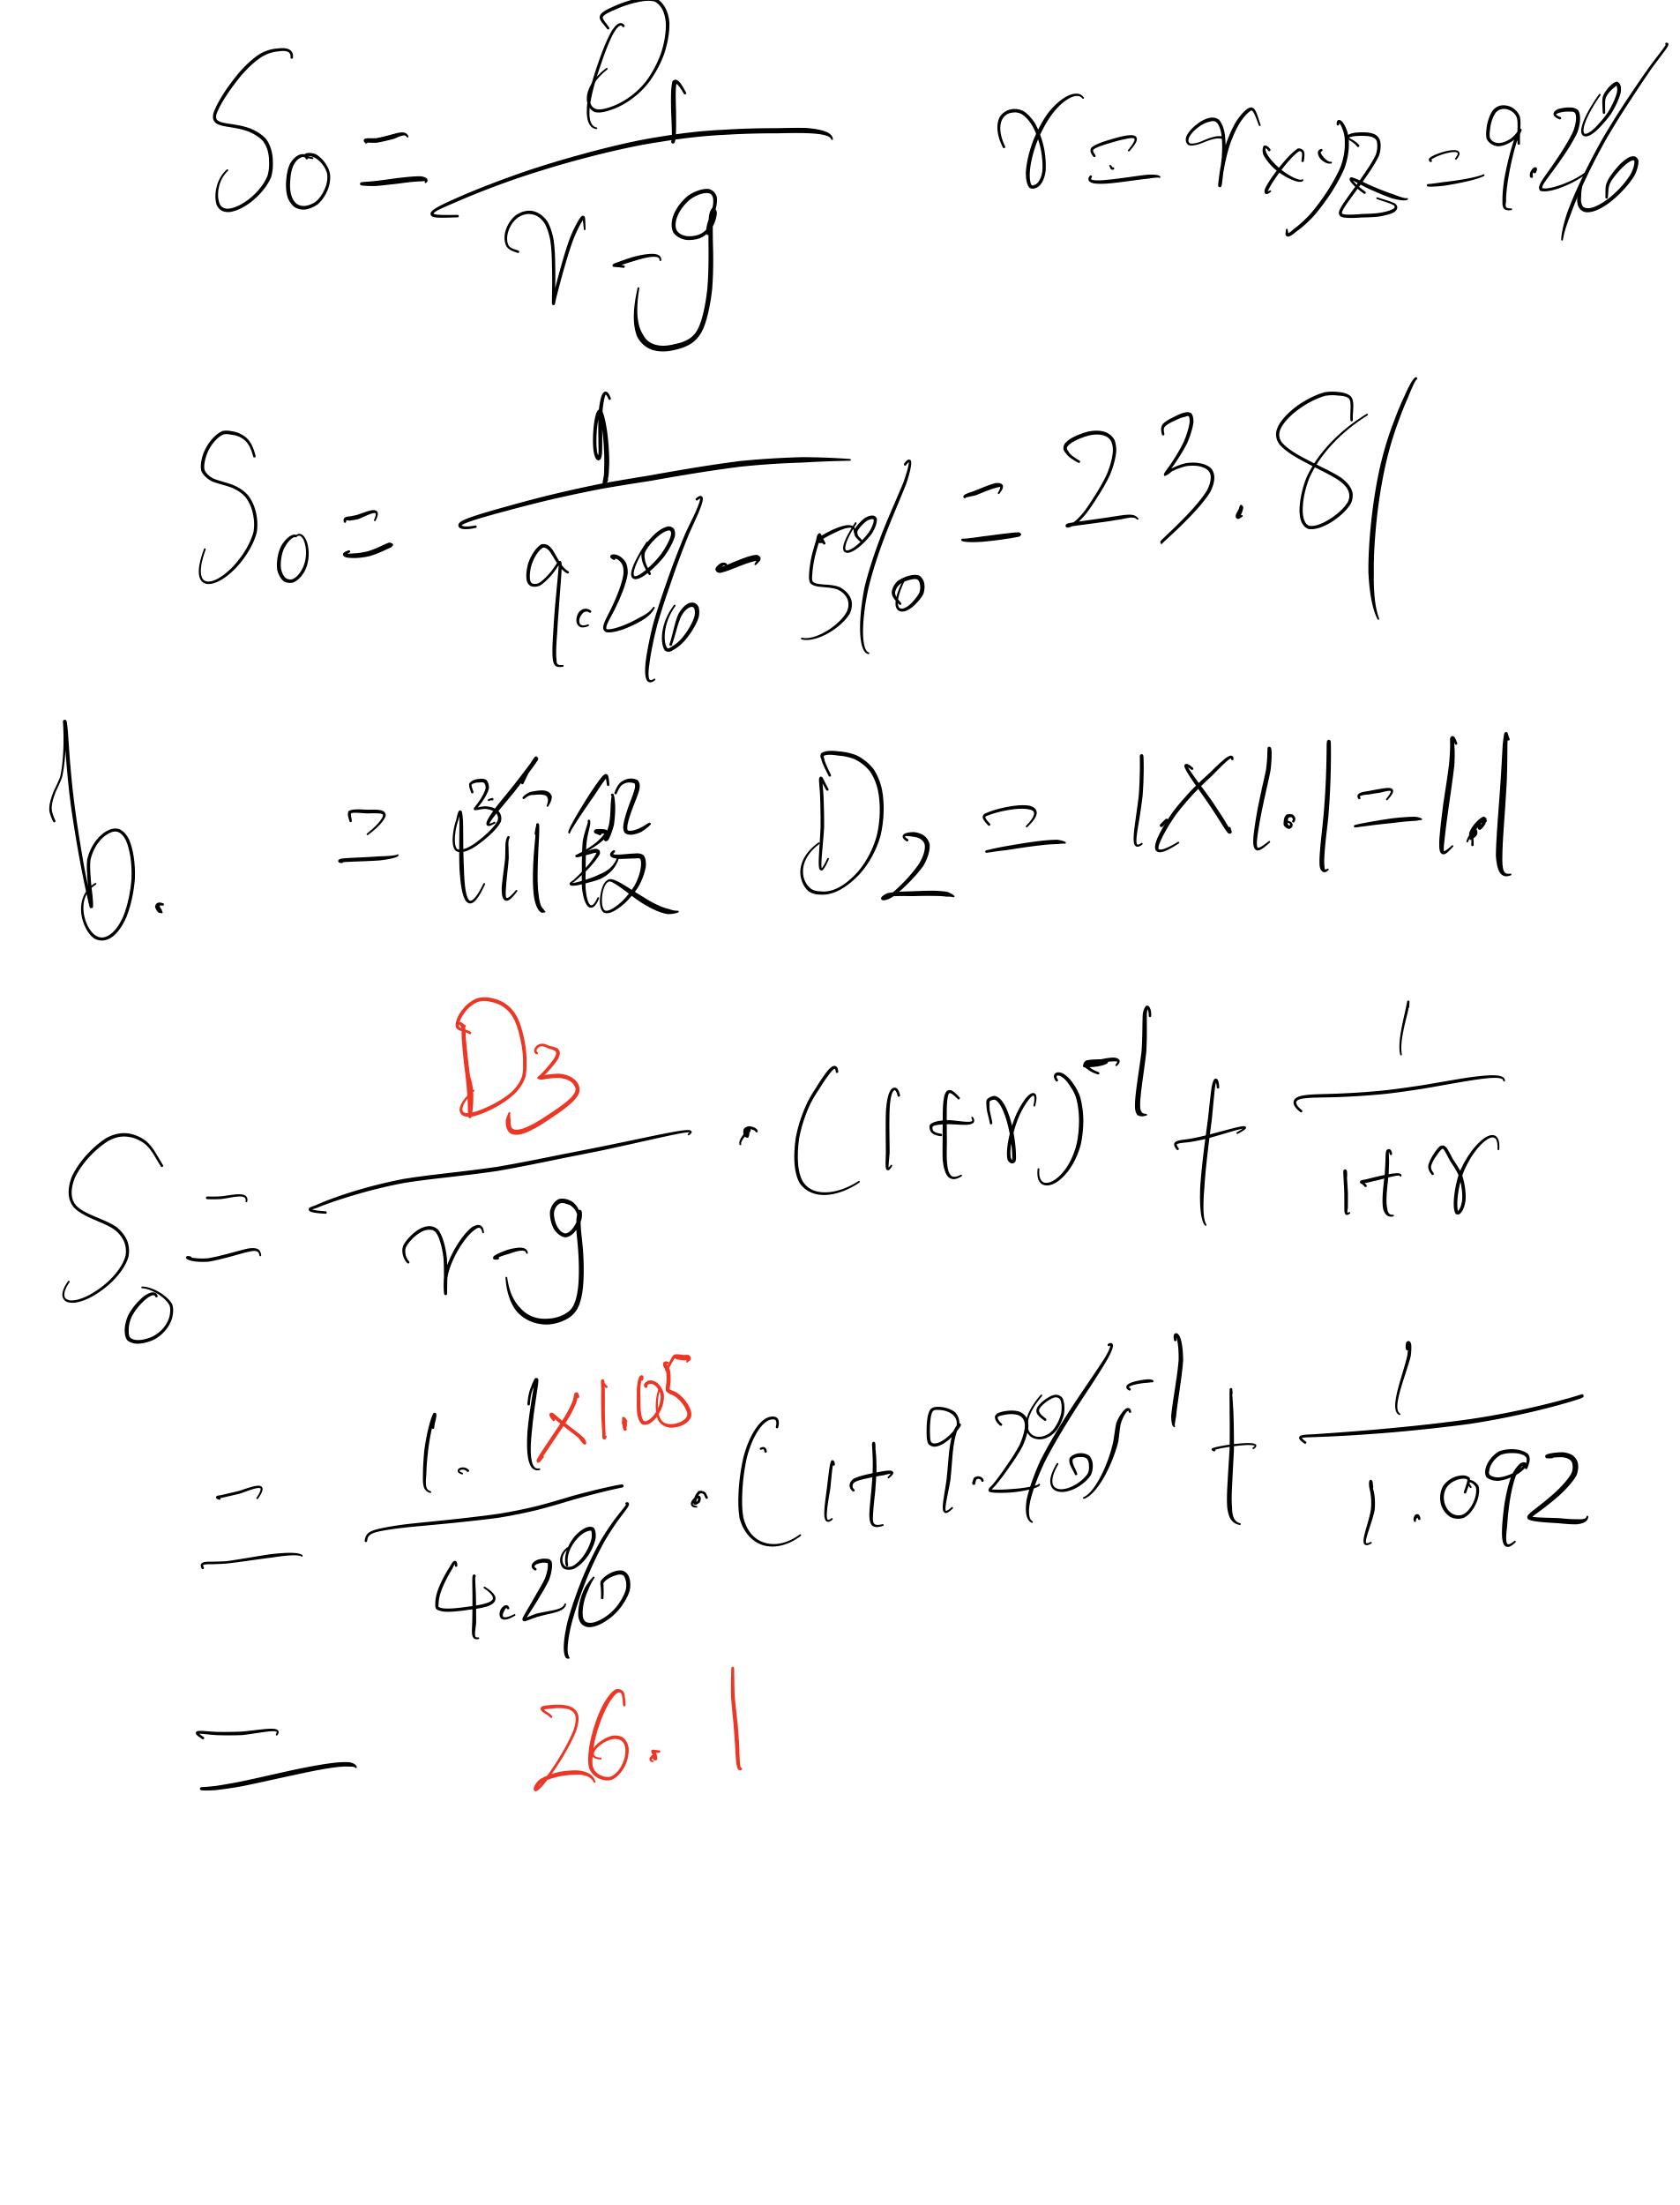 S₀ = D₁ / (r - g)    r = 9.2%
S₀ = 1 / (9.2% - 5%) = 23.81
b. 二阶段 D₂ = 1×1.1 = 1.1
S₀ = D₃ / (r - g) · (1+r)⁻¹ + 1 / (1+r)
= 1.1×1.05 / 4.2% · (1+9.2%)⁻¹ + 1 / 1.092
= 26.1